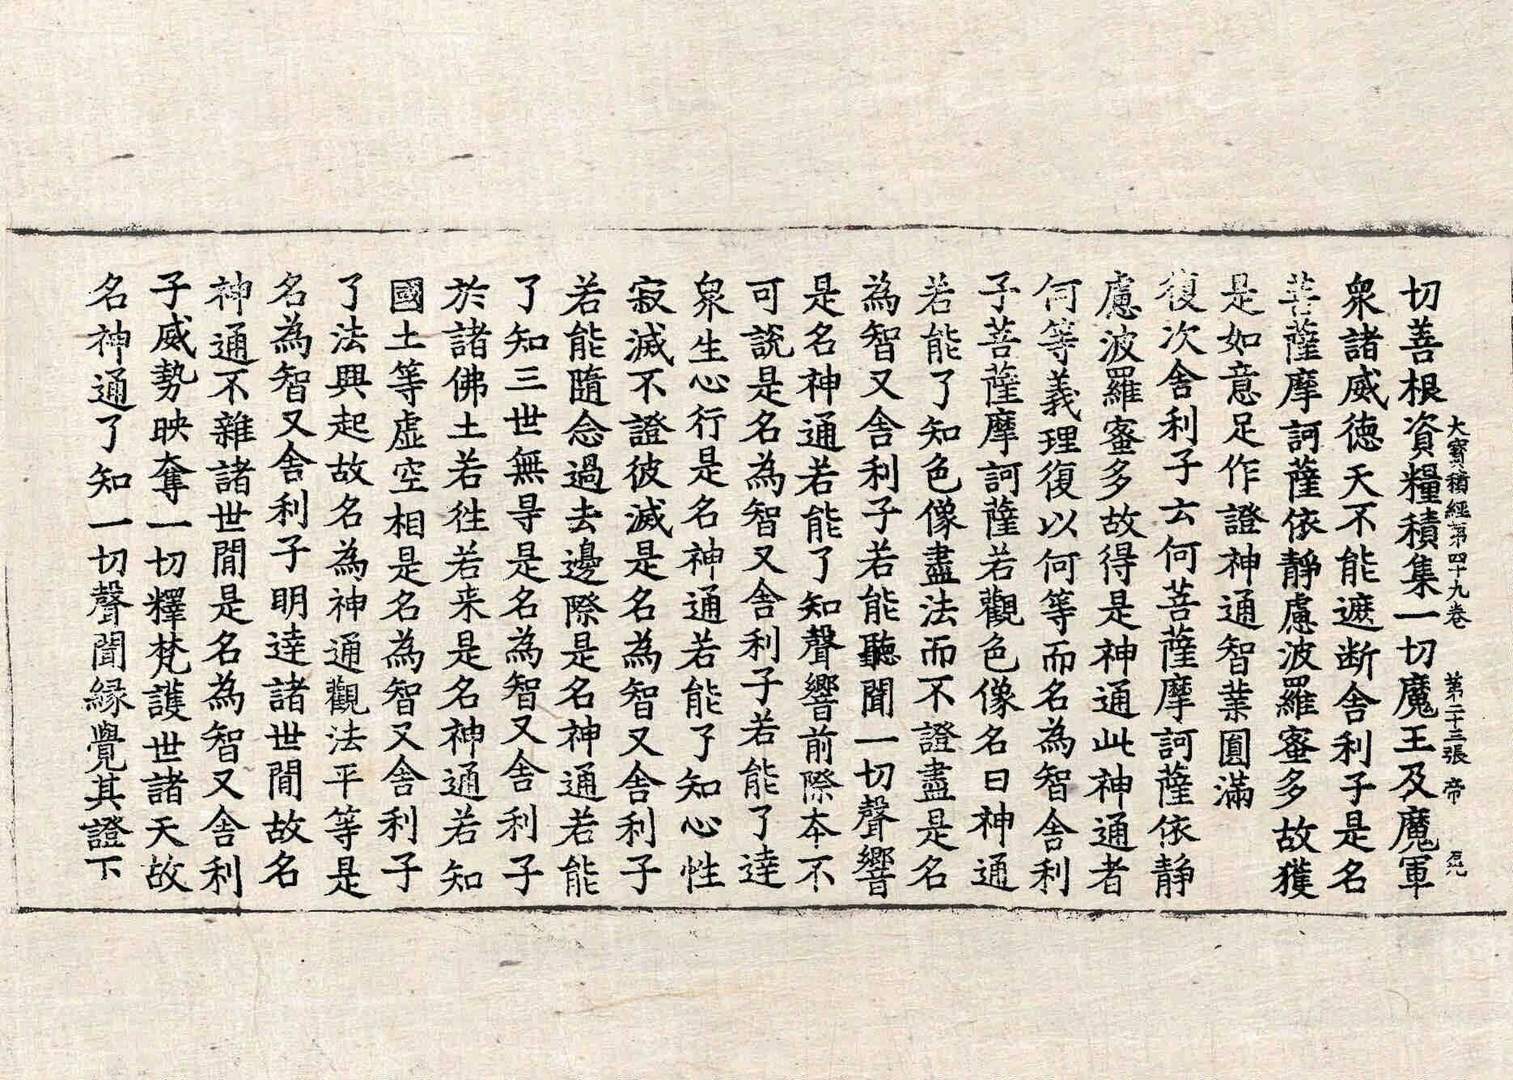 大寶積經第四十九卷　第二十三張　帝
切善根資糧積集一切魔王及魔軍
衆諸威德天不能遮断舍利子是名
菩薩摩訶薩依靜慮波羅蜜多故獲
是如意足作證神通智業圓滿
復次舍利子云何菩薩摩訶薩依靜
慮波羅蜜多故得是神通此神通者
何等義理復以何等而名為智舍利
子菩薩摩訶薩若觀色像名曰神通
若能了知色像盡法而不證盡是名
為智又舍利子若能聽聞一切聲響
是名神通若能了知聲響前際本不
可說是名為智又舍利子若能了達
衆生心行是名神通若能了知心性
寂滅不證彼滅是名為智又舍利子
若能隨念過去邊際是名神通若能
了知三世無㝵是名為智又舍利子
於諸佛土若徃若来是名神通若知
國土等虛空相是名為智又舍利子
了法興起故名為神通觀法平等是
名為智又舍利子明達諸世間故名
神通不雜諸世間是名為智又舍利
子威勢映奪一切釋梵護世諸天故
名神通了知一切聲聞縁覺其證下